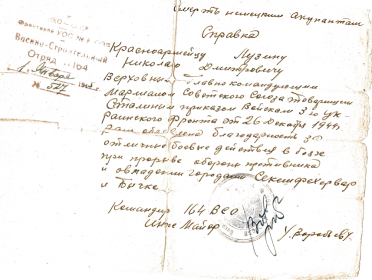 Смерть немецким окупантам
Справка
Военно-Строительный
Отряд № 104
Января
Красноармейцу Лузину
Николаю Дмитриевичу
Верховным Главнокомандующим
Маршалом Советского Союза товарищем
Сталиным приказом Войскам 3го Ук
раинского Фронта от 26 Декабря 1944
Вам объявлена благодарность за
отличные боевые действия в боях
при прорыве обороны противника
и овладении городами Секешфехервар
и Бичке
Командир 164 ВСО
Инж. Майор